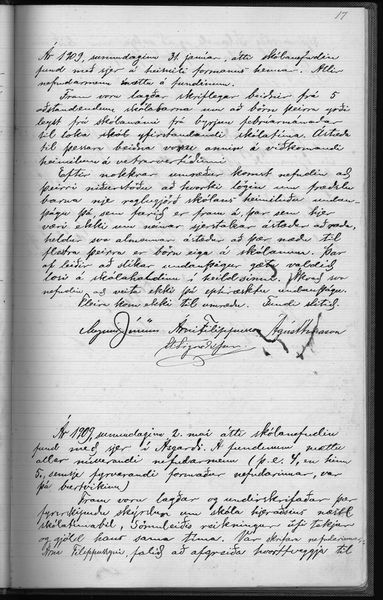 17
Ár 1909, sunnudaginn 31. janúar, átti skólanefndin
fund með sjer á heimili formanns hennar. Allir
nefndarmenn mættu á fundinum.
Fram voru lagðar skriflegar beiðnir frá 5
aðstandendum skólabarna um að börn þeirra yrðu
leyst frá skólanámi frá byrjun febrúarmánaðar
til loka skól yfirstandandi skólatíma. Ástæða
til þessara beiðna voru annir á viðkomandi
heimilum á vetrarvertíðinni
Eftir nokkrar umræður komst nefndin að
þeirri niðurstöðu að hvorki lögin um fræðslu
barna nje reglugjörð skólans heimiluðu undan-
þágu þá, sem farið er fram á, þar sem hjer
væri ekki um neinar sjerstakar ástæður að ræða,
heldur svo almennar ástæður að þær næðu til
flestra þeirra er börn eiga á skólanum. Þar
af leiðir að slíkar undanþágur gætu valdið
losi á skólahaldinu í heild sinni. Skal svo
nefndin að veita ekki þá eptiræsktu undanþágu.
Fleira kom ekki til umræðu. Fundi slitið.
Magnús Jónsson Árni Filippusson
Ár 1909, sunnudaginn 2. maí átti skólanefndin
fund með sjer á Ásgarði. Á fundinum mættu
allir núverandi nefndarmenn (þ.e. 4, en hinn
5., sem er fyrverandi formaður nefndarinnar, var
þá burtvikinn)
Fram voru lagðar og undirskrifaðar þar
fyrirskipuðu skýrslur um skóla hjeraðsins næstl.
skólatímabil, sömuleiðis reikningur yfir tekjur
og gjöld hans sama tíma. Var skrifara nefndarinnar,
Árna Filippussyni, falið að afgreiða hvorttveggja til